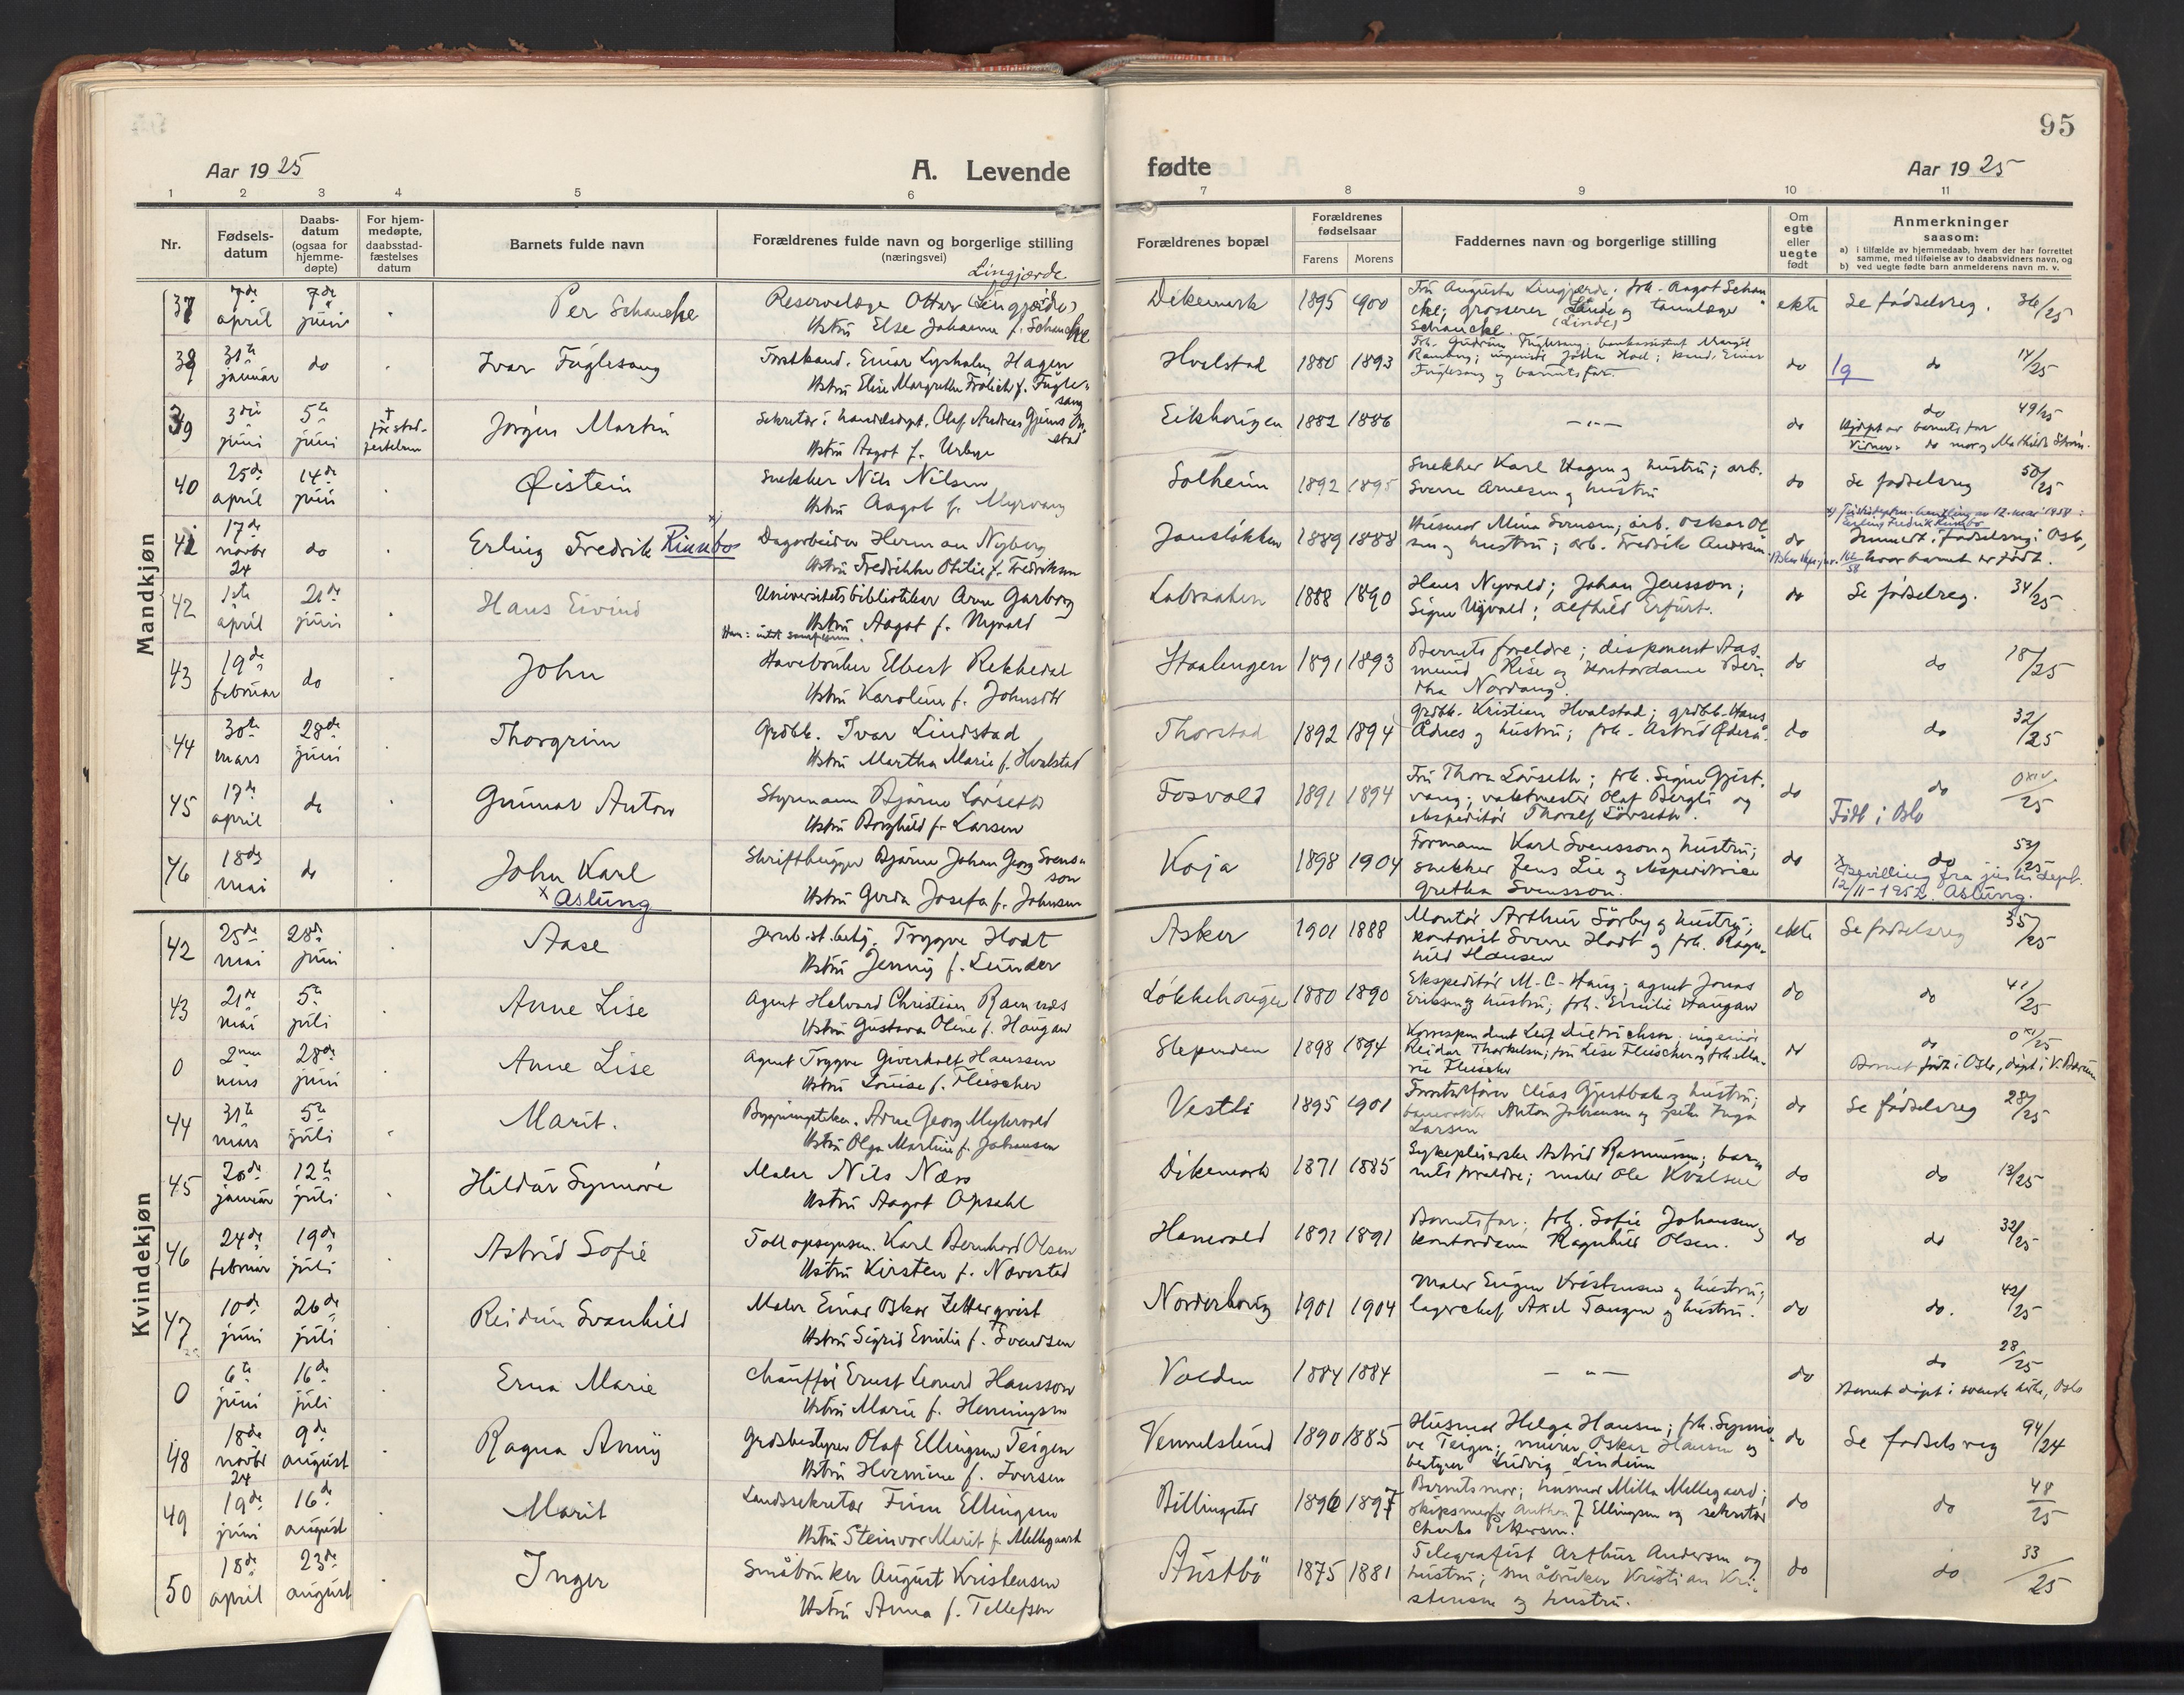 95
Aar 1925
A. Levende
fødte
Aar 1925
1 2 3 4 5 6 7 8 9 10 11
Nr.
Fødsels-
datum
Daabs-
datum
(ogsaa for
hjemme-
døpte)
For hjem-
medøpte,
daabsstad-
fæstelses
datum
Barnets fulde navn
Forældrenes fulde navn og borgerlige stilling
(næringsvei)
Forældrenes bopæl
Forældrenes
fødselsaar
Farens Morens
Faddernes navn og borgerlige stilling
Om
egte
eller
uegte
født
Anmerkninger
saasom:
a) i tilfælde av hjemmedaab, hvem der har forrettet
samme, med tilføielse av to daabsvidners navn, og
b) ved uegte fødte barn anmelderens navn m. v.
Mandkjøn
Lingjærde
37 7de april 7de juni Per Schanche
Reservelæge Ottar (Lingjærde)
Hstru Else Johanne f. Schanche
Dikemark 1895 1900
Fru Augusta Lingjærde; frk. Aagot Schan
che; grosserer Linde og tannlæge
Schancke. (Linde)
ekte Se fødselsreg. 36/25
38 31te januar do Ivar Fuglesang
Forstkand. Einar Lysholm Hagen
Hstru Elise Margrethe Frölich f. Fugle-
sang
Hvalstad 1880 1893
Frk. Gudrun Fuglesang; bankassistent Margit
Ramberg; ingeniør John Hoel; kand. Einar
Fuglesang og barnets far
do 19 do 14/25
39 3die juni 5te juni Jørgen Martin
Sekretær i handelsdept. Olaf Andreas Gjems On-
stad
Hstru Aagot f. Urbye
Eikhaugen 1882 1886 — " —
do do 49/25
Hjdøpt av barnets far
Vidner: do mor og Mathilde Strøm.
40 25de april 14de juni Øistein
Snekker Nils Nilsen
Hstru Aagot f. Myrvang
Solheim 1892 1895
Snekker Karl Hagen og hustru; arb.
Sverre Arnesen og hustru
do Se fødselsreg 50/25
41 17de novbr 24 do Erling Fredrik Rimbo x)
Dagarbeider Herman Nyberg
Hstru Fredrikke Otilie f. Fredriksen
Jansløkken 1889 1888
Husmor Mina Svensen; arb. Oskar Ol
sen og hustru; arb. Fredrik Andersen
do
Erling Fredrik Rimbo
Innmeldt i fødselsreg i Oslo,
hvor barnet er født.
42 1ste april 21de juni Hans Eivind
Universitetsbibliotekar Arne Garborg
Hstru Aagot f. Nyvold
Labraaten 1888 1890
Hans Nyvold; Johan Jensson;
Signe Nyvold; Alfhild Erfurt.
do Se fødselsreg. 34/25
43 19de februar do John
Havebruker Elbert Rekkedal
Hstru Karoline f. Johnsdtr
Haalengen 1891 1893
Barnets foreldre; disponent Aas
mund Rise og kontordame Ber-
tha Nordang.
do do 18/25
44 30te mars 28de juni Thorgrim
Grdbr. Ivar Lindstad
Hstru Martha Marie f. Hvalstad
Thorstad 1892 1894
Grdbr. Kristian Hvalstad; grdbr. Hans
Ådnes og hustru; frk. Astrid Ødera.
do do 32/25
45 17de april do Gunnar Anton
Styrmann Bjarne Løvseth
Hstru Borghild f. Larsen
Fosvold 1891 1894
Fru Thora Løvseth; frk. Signe Gjest-
vang; vaktmester Olaf Bergli og
ekspeditør Thoralf Løvseth.
do do 0 XIV/25
Født i Oslo
46 18de mai do John Karl
x Aslung
Skriftbygger Bjarne Johan Georg Svens-
son
Hstru Gerda Josefa f. Johnsen
Koja 1898 1904
Formann Karl Svensson og hustru;
snekker Jens Lie og ekspeditrise
Gretha Svensson.
do do 53/25
x Bevilling fra justisdept.
12/11-1952. Aslung.
Kvindekjøn
42 25de mai 28de juni Aase
Jernb.st.betj. Trygve Hodt
Hstru Jenny f. Lunder
Asker 1901 1888
Montør Arthur Sørby og hustru;
kontorist Sverre Hodt og frk. Ragn-
hild Hansen
ekte Se fødselsreg 35/25
43 21de mai 5te juli Anne Lise
Agent Halvard Christian Ramnæs
Hstru Gustava Oline f. Haugan
Løkkehaugen 1880 1890
Ekspeditør M. C. Haug; agent Jonas
Eriksen og hustru; frk. Emilie Haugan
do do 41/25
0 2nen mars 28de juni Anne Lise
Agent Trygve Giverholt Hanssen
Hstru Louise f. Fleischer
Slependen 1898 1894
Korrespondent Leif Dietrichson; ingeniør
Reidar Thorkelsen; fru Lise Fleischer og frk Ma-
rie Fleischer
do do 0 XI/25
Barnet født i Oslo, døpt i V. Bærum
44 31te mars 5te juli Marit.
Bygningstekn. Arne Georg Myhrvold
Hstru Olga Martine f. Johansen
Vestli 1895 1901
Forretnfører Elias Gjestbak og hustru;
banevokter Anton Johansen og pike Inga
Larsen
do Se fødselsreg 28/25
45 20de januar 12te juli Hildur Synnøve
Maler Nils Næss
Hstru Aagot Opsahl
Dikemark 1871 1885
Sykepleierske Astrid Rasmussen; bar-
nets foreldre; maler Ole Kvalsue
do do 13/25
46 24de februar 19de juli Astrid Sofie
Tollopsynsm. Karl Bernhard Olsen
Hstru Kirsten f. Navestad
Hanevold 1891 1891
Barnets far; frk. Sofie Johansen og
kontordame Ragnhild Olsen.
do do 32/25
47 10de juni 26de juli Reidun Svanhild
Maler Einar Oskar Zetterqvist
Hstru Sigrid Emilie f. Svendsen
Norderhaug 1901 1904
Maler Eugen Kristensen og hustru;
lagerchef Axel Tangen og hustru.
do do. 42/25
0 6te juni 16de juli Erna Marie
Chauffør Ernst Leonard Hansson
Hstru Marie f. Henningsen
Volden 1884 1884 — " —
do do 28/25
Barnet døpt i svenske kirke, Oslo
48 18de novbr 24 9de august Ragna Anny
Grdsbestyrer Olaf Ellingsen Teigen
Hstru Hermine f. Iversen
Vennelslund 1890 1885
Husmor Helga Hansen; frk. Synnø
ve Teigen; murer Oskar Hansen og
bestyrer Ludvig Lindum
do Se fødselsreg 94/24
49 19de juni 16de august Marit
Landssekretær Finn Ellingsen
Hstru Steinvor Marit f. Mellegaard
Billingstad 1896 1897
Barnets mor; husmor Milla Mellegaard;
skipsmegler Anthon J Ellingsen og sekretær
Charles Pettersen.
do do 48/25
50 18de april 23de august Inger
Småbruker August Kristensen
Hstru Anna f. Tellefsen
Austbø 1875 1881
Telegrafist Arthur Andersen og
hustru; småbruker Kristian Kri-
stensen og hustru.
do do 33/25